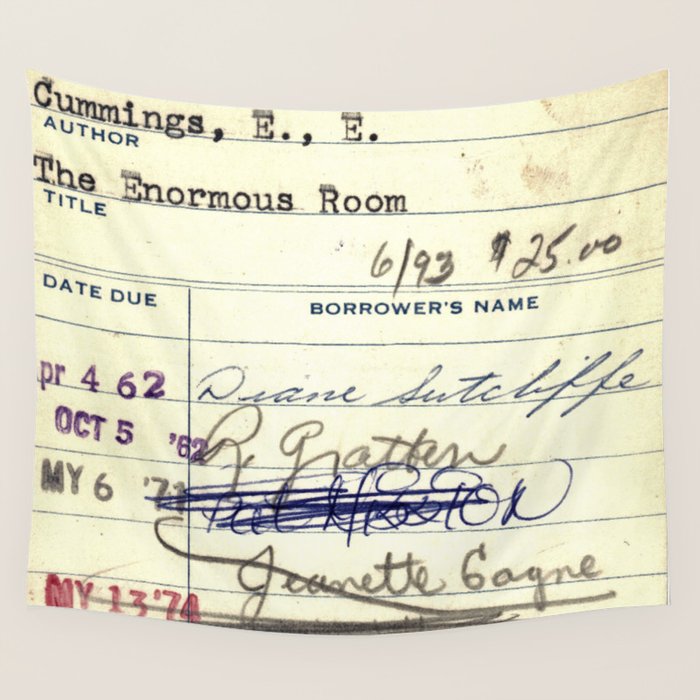 Cummings, E., E.
AUTHOR
The Enormous Room
TITLE
6/93 $25.00
DATE DUE BORROWER'S NAME
pr 4 62 Diane Sutcliffe
OCT 5 '62 R. Grattan
MY 6 '71
Jeanette Gagne
MY 13 '74